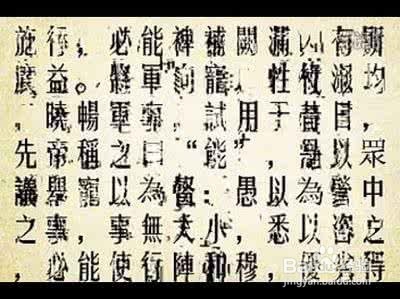 施行，必能裨補闕 有
廣益。將軍向寵，性 淑均，
，曉暢軍事，試用于昔日，
先帝稱之曰“能”，是以眾
議舉寵以為督：愚以為營中
之事，事無大小，悉以咨之
，必能使行陣和穆，優 得
Baidu
jingyan.baidu.com